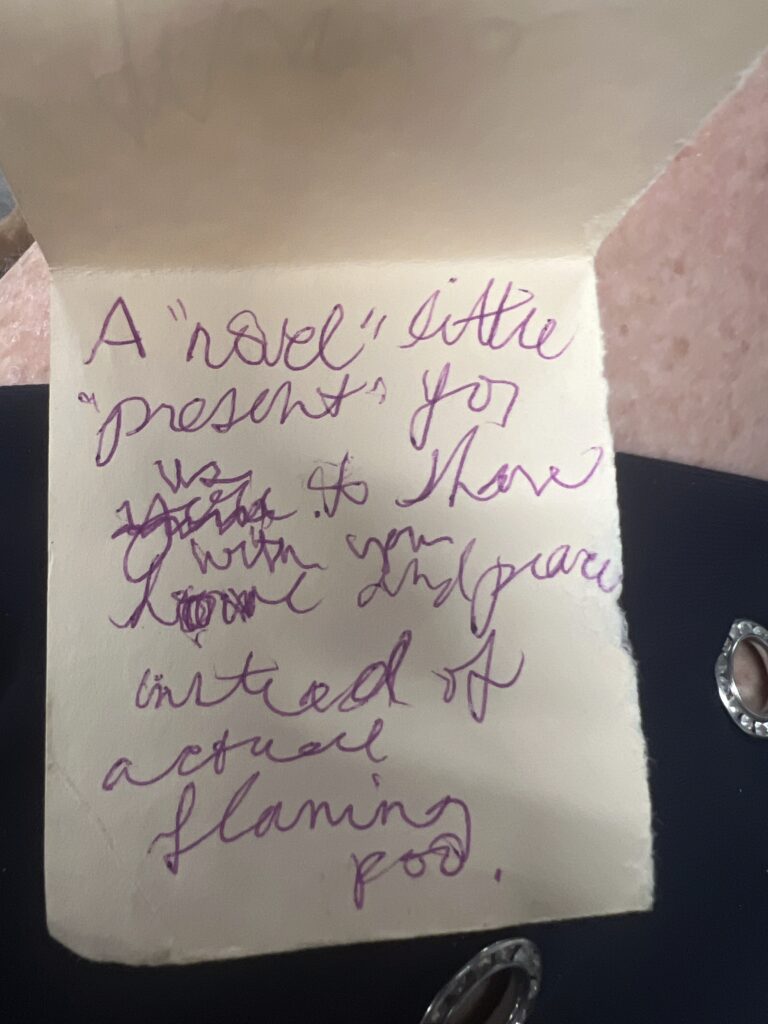 A "novel" little
"present" for
us to share
with you
and peace
instead of
actual
flaming
poo.